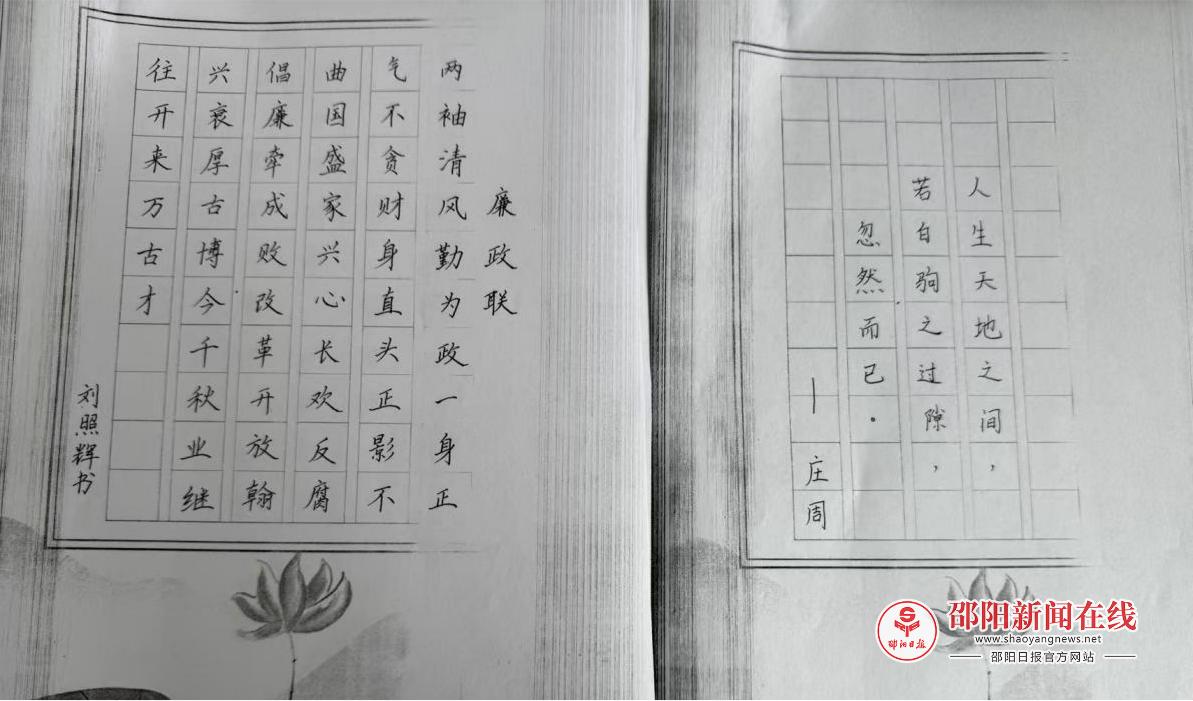 廉政联
两袖清风勤为政一身正
气不贪财身直头正影不
曲国盛家兴心长欢反腐
倡廉牵成败改革开放翰
兴衰厚古博今千秋业继
往开来万古才
刘照辉书
人生天地之间，
若白驹之过隙，
忽然而已.
—庄周
邵阳日报
邵阳新闻在线
www.shaoyangnews.net
邵阳日报官方网站